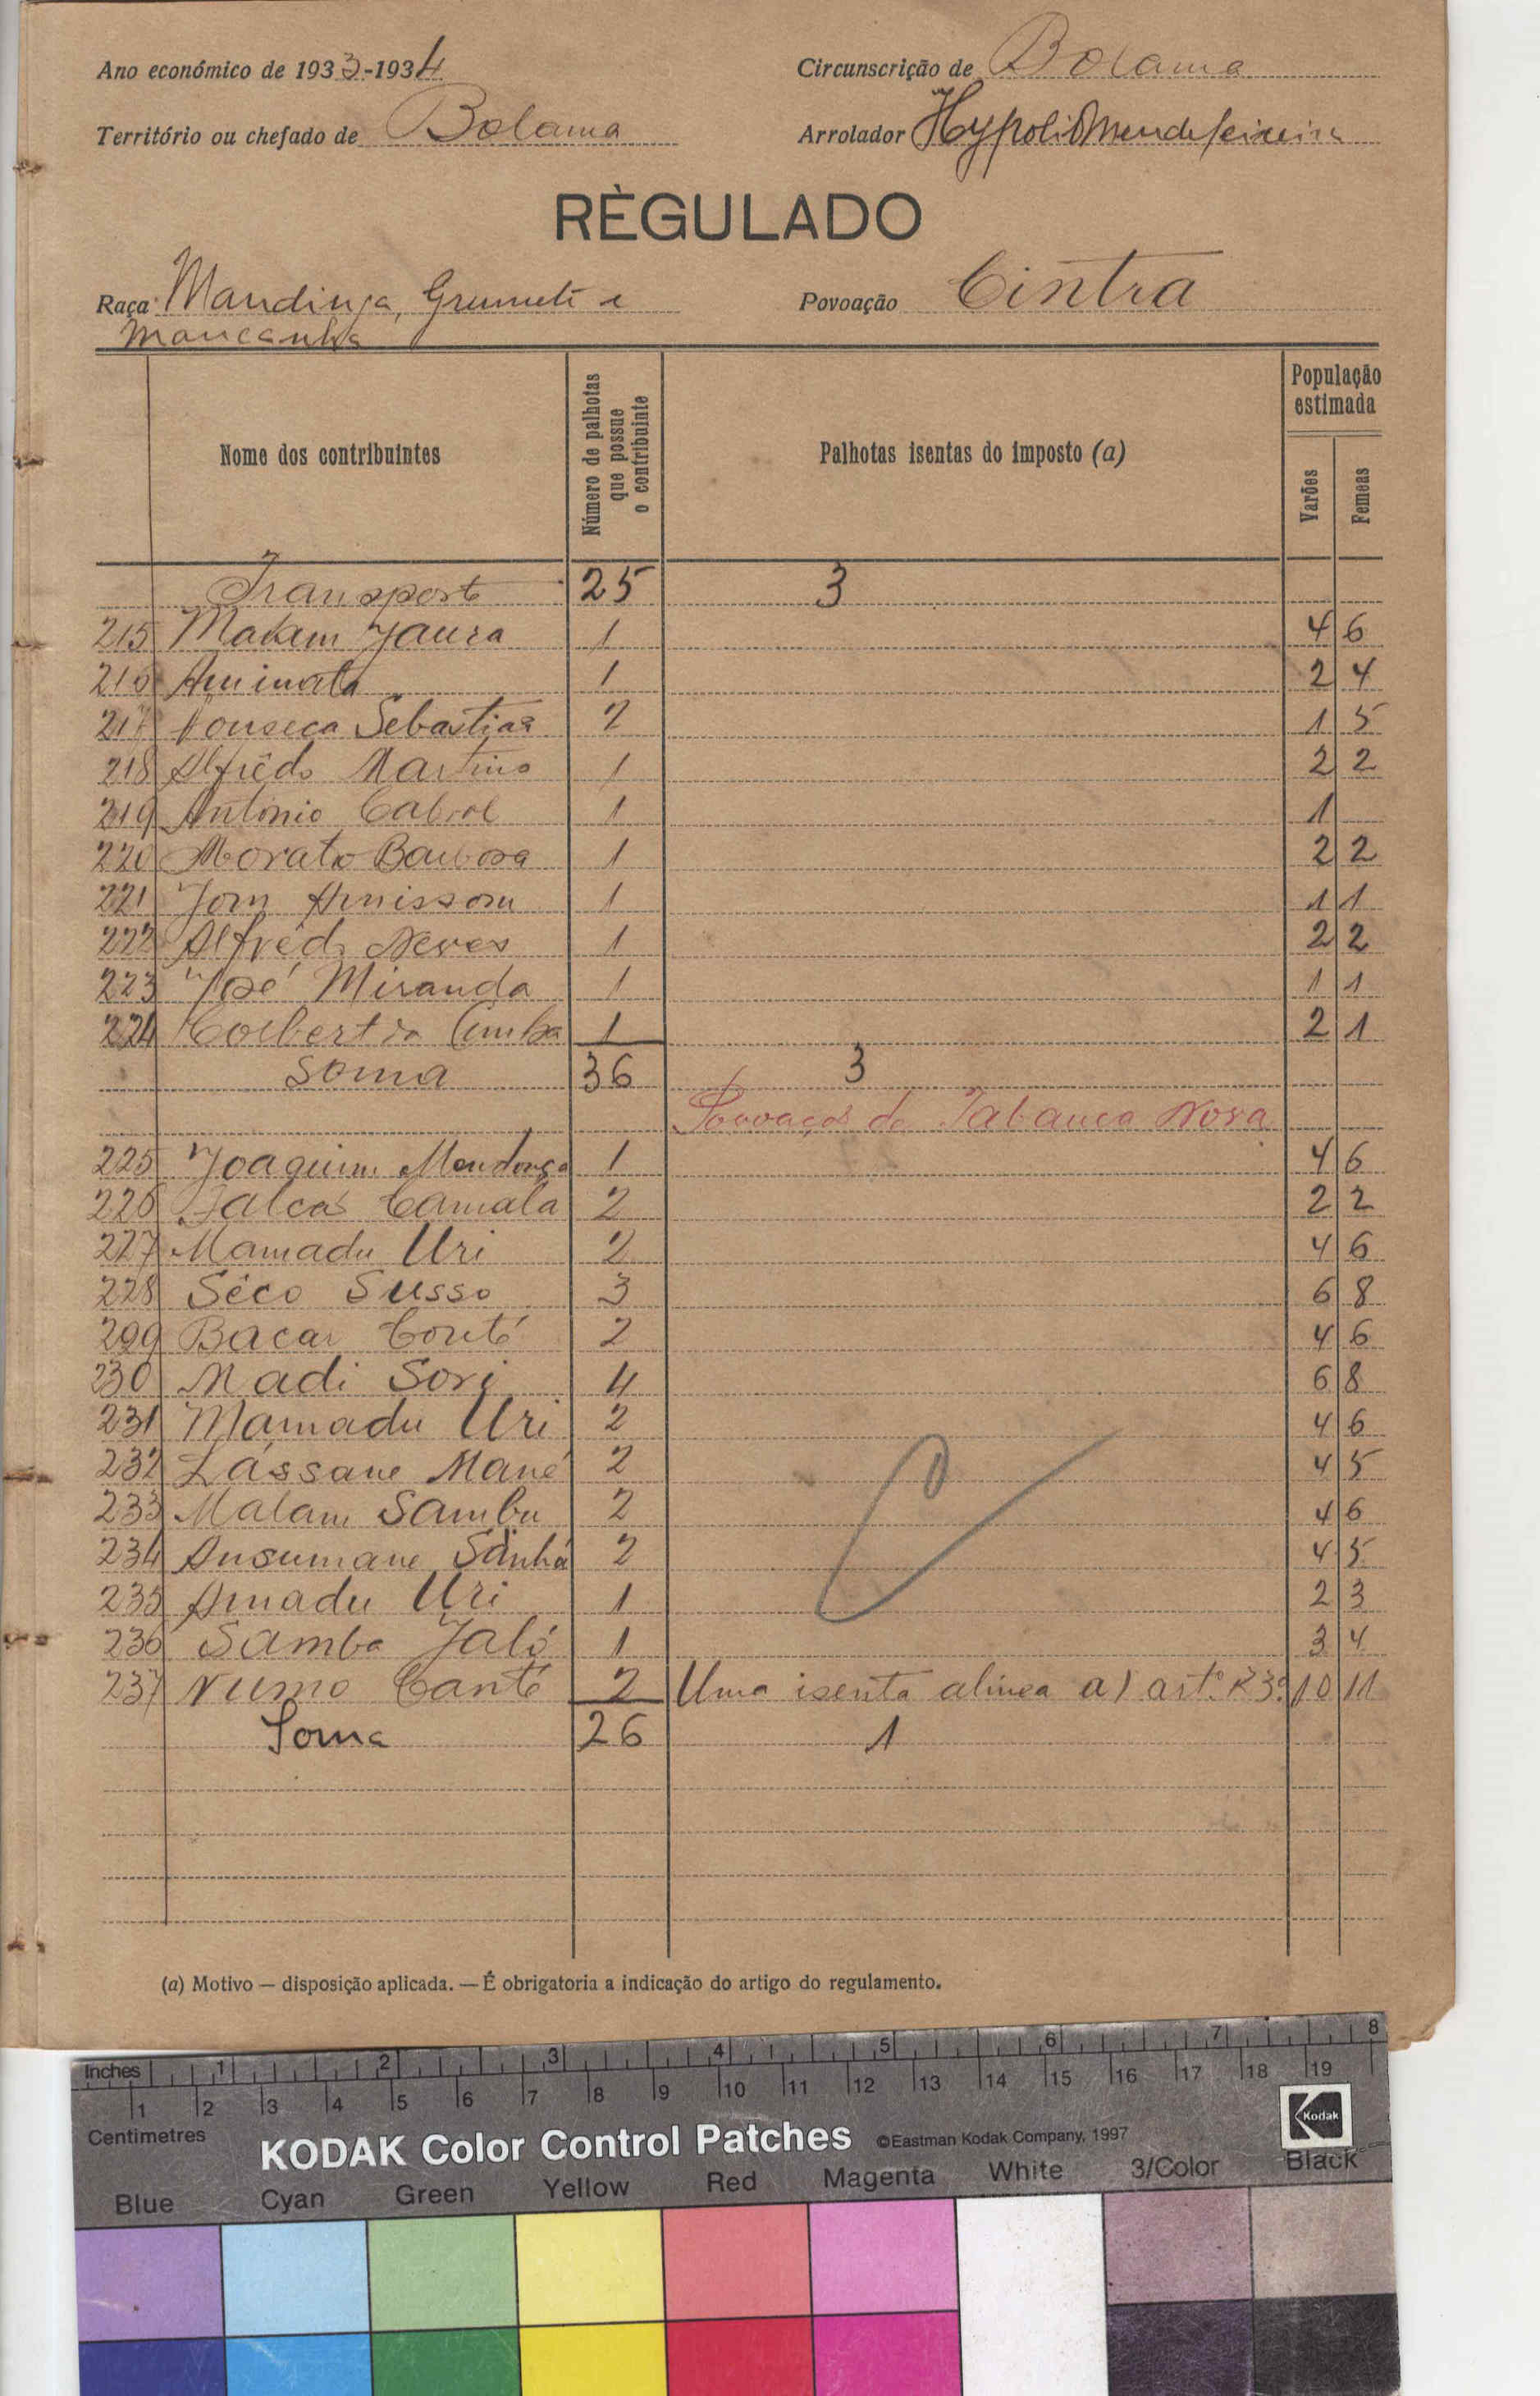 Ano económico de 1933-1934
Circunscrição de Bolama
Território ou chefado de Bolama
Arrolador Hypolito Mendes Teixeira
RÈGULADO
Raça Mandinga, Grumete e
Mancanha
Povoação Cintra
Nome dos contribuintes
Número de palhotas que possue o contribuinte
Palhotas isentas do imposto (a)
População estimada
Varões
Femeas
Transporte 25 3
215 Malam Jaura 1 4 6
216 Aminata 1 2 4
217 Fonseca Sebastião 2 1 5
218 Alfrêdo Martins 1 2 2
219 António Cabral 1 1
220 Morato Barbosa 1 2 2
221 Jom 1 1 1
222 Alfrêdo Neves 1 2 2
223 José Miranda 1 1 1
224 1 2 1
Soma 36 3
Povoação de Tabanca Nova
225 Joaquim Mendonça 1 4 6
226 Camala 2 2 2
227 Mamadu Uri 2 4 6
228 Séco Susso 3 6 8
299 Bacar Conté 2 4 6
230 Madi Sori 4 6 8
231 Mamadu Uri 2 4 6
232 Lássane Mané 2 4 5
233 Malam Sambu 2 4 6
234 Ansumane Sanhá 2 4 5
235 Amadu Uri 1 2 3
236 Samba Jaló 1 3 4
237 Numo Canté 2 Uma isenta alinea a) art.º 23º 10 11
Soma 26 1
(a) Motivo — disposição aplicada. — É obrigatoria a indicação do artigo do regulamento.
Inches 1 2 3 4 5 6 7 8
1 2 3 4 5 6 7 8 9 10 11 12 13 14 15 16 17 18 19
Centimetres
KODAK Color Control Patches ©Eastman Kodak Company, 1997
Kodak
Blue Cyan Green Yellow Red Magenta White 3/Color Black